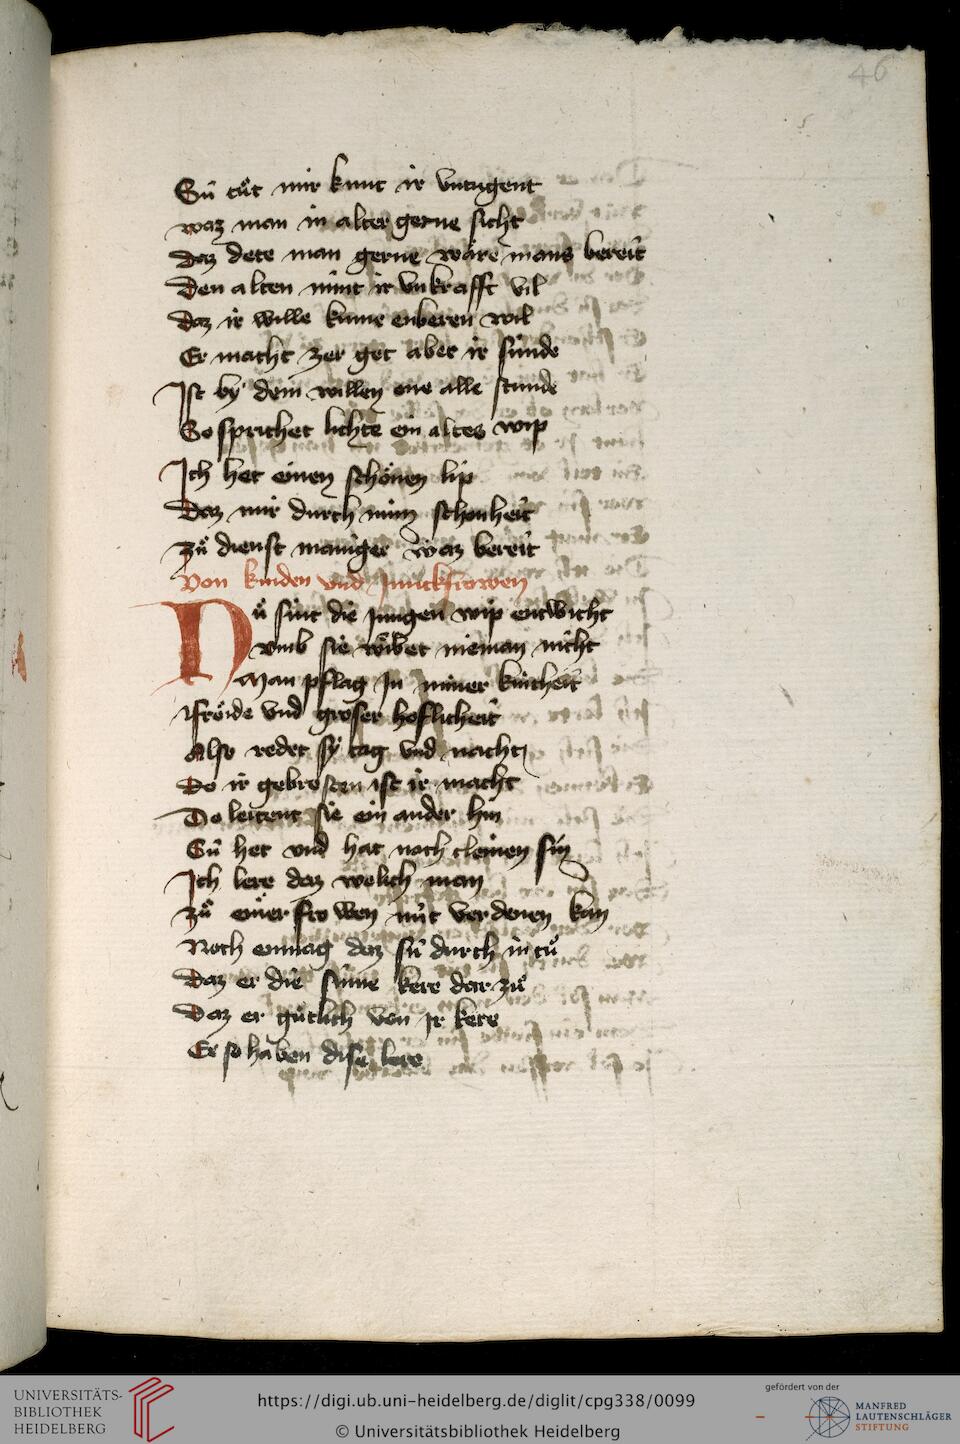 46
Sú tuͦt mir kunt ir vntugent
waz man in alter gerne sicht
Daz dete man gerne wåre mans bereit
Den alten nimt ir vnkrafft vil
Daz ir wille kume enberen wil
Er macht zer get aber ir súnde
Ist by dem willen ene alle stunde
So sprichet lichte ein altes wip
Ich het einen schönen lip
Daz mir durch min schonheit
zuͦ dienst maniger waz bereit
Von kinden vnd Junckfrowen
Nuͦ sint die jungen wip entwicht
vmb sie wibet nieman nicht
Man pflag In miner kintheit
Fröide vnd groser hoflicheit
Also redet sy tag vnd nacht
Do ir gebrosten ist ir macht
Do leitent sie ein ander hin
Sú het vnd hat noch cleinen sin
Ich lere daz welich man
zuͦ einer frowen nút verdenen kan
Noch enmag daz sú durch in tuͦ
Daz er die sinne kere dar zuͦ
Daz er guͤtlich von Ir kere
Er so haben dise lere
UNIVERSITÄTS-
BIBLIOTHEK
HEIDELBERG
https://digi.ub.uni-heidelberg.de/diglit/cpg338/0099
© Universitätsbibliothek Heidelberg
gefördert von der
MANFRED
LAUTENSCHLÄGER
STIFTUNG